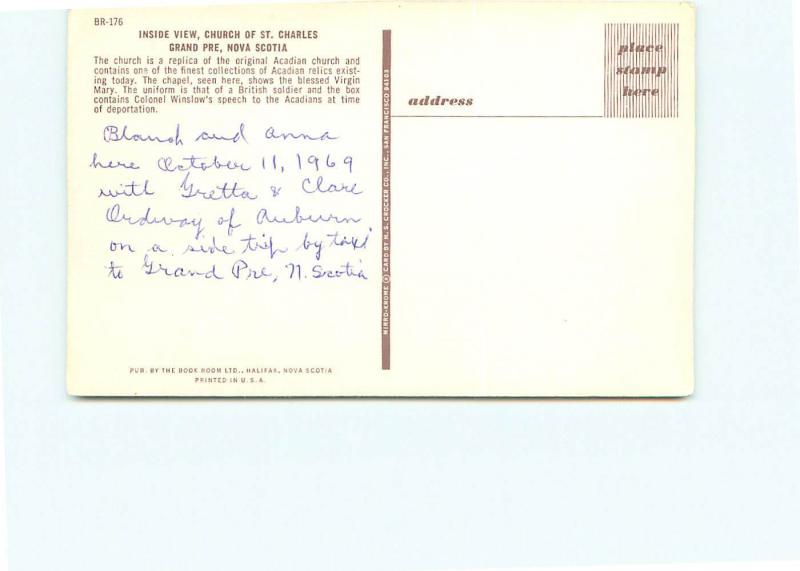 BR-176
INSIDE VIEW, CHURCH OF ST. CHARLES
GRAND PRE, NOVA SCOTIA
The church is a replica of the original Acadian church and
contains one of the finest collections of Acadian relics exist-
ing today. The chapel, seen here, shows the blessed Virgin
Mary. The uniform is that of a British soldier and the box
contains Colonel Winslow's speech to the Acadians at time
of deportation.
Blanch and Anna
here October 11, 1969
with Gretta & Clare
Ordway of Auburn
on a side trip by taxi
to Grand Pre, N. Scotia
PUB. BY THE BOOK ROOM LTD., HALIFAX, NOVA SCOTIA
PRINTED IN U.S.A.
MIRRO-KROME ® CARD BY H. S. CROCKER CO., INC., SAN FRANCISCO 94103
address
place
stamp
here